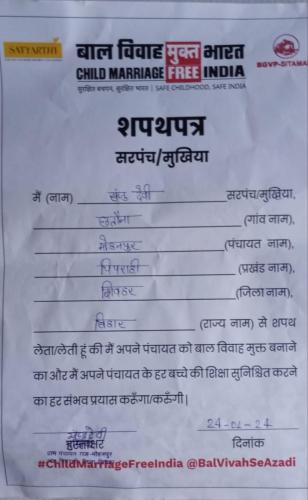 SATYARTHI
बाल विवाह मुक्त भारत
CHILD MARRIAGE FREE INDIA
सुरक्षित बचपन, सुरक्षित भारत | SAFE CHILDHOOD, SAFE INDIA
BGVP-SITAMA
शपथपत्र
सरपंच/मुखिया
मैं (नाम) देवी सरपंच/मुखिया,
छतौना (गांव नाम),
मोहनपुर (पंचायत नाम),
पिपराही (प्रखंड नाम),
शिवहर (जिला नाम),
बिहार (राज्य नाम) से शपथ
लेता/लेती हूं की मैं अपने पंचायत को बाल विवाह मुक्त बनाने
का और मैं अपने पंचायत के हर बच्चे की शिक्षा सुनिश्चित करने
का हर संभव प्रयास करूँगा/करूँगी।
देवी 24-01-24
हस्ताक्षर दिनांक
ग्राम पंचायत राज-मोहनपुर
#ChildMarriageFreeIndia @BalVivahSeAzadi